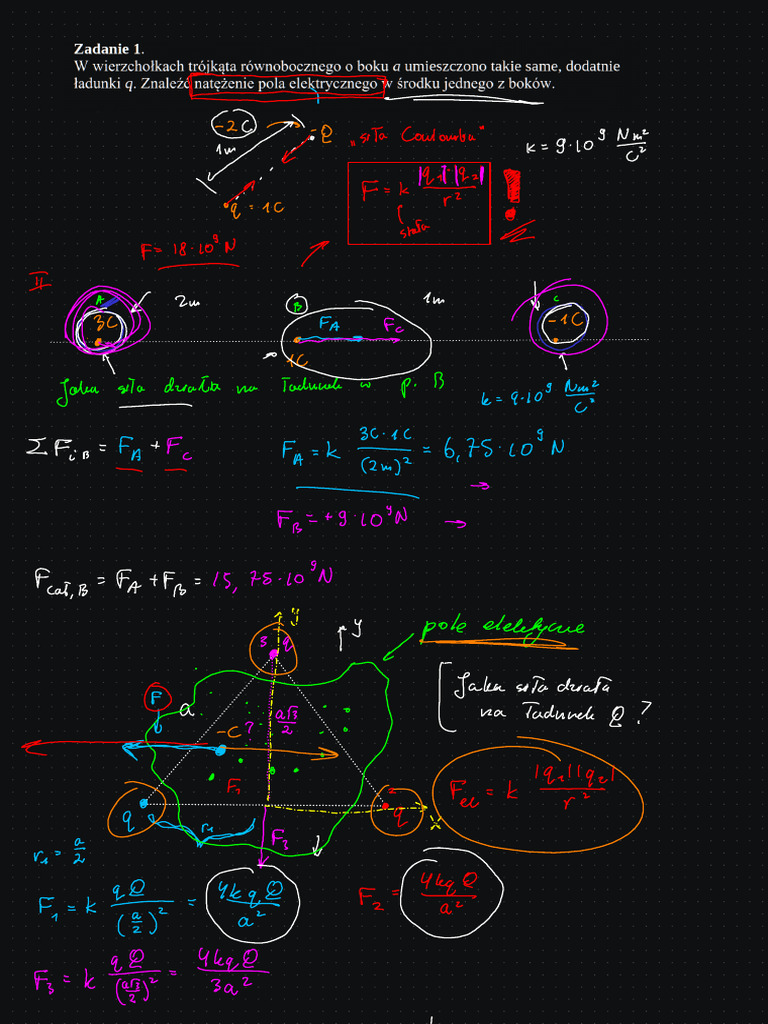 Zadanie 1.
W wierzchołkach trójkąta równobocznego o boku a umieszczono takie same, dodatnie
ładunki q. Znaleźć natężenie pola elektrycznego w środku jednego z boków.
-2C
-Q
1m
q = 1C
„siła Coulomba"
k = 9·10⁹ Nm²/C²
F = k |q₁|·|q₂|/r²
!
stała
F = 18·10⁹ N
II
A
3C
2m
B
1C
F_A
F_C
1m
C
-1C
Jaka siła działa na ładunek w p. B
k = 9·10⁹ Nm²/C²
Σ F_iB = F_A + F_C
F_A = k 3C·1C/(2m)² = 6,75·10⁹ N
→
F_B = +9·10⁹ N →
F_cał,B = F_A + F_B = 15,75·10⁹ N
y
3 q
y
pole elektryczne
F
a
?
a√3/2
-C
Jaka siła działa
na ładunek Q?
F₁
q
r₁
2
q
x
F₃
F_el = k |q₁||q₂|/r²
r₁ = a/2
F₁ = k qQ/(a/2)² = 4kqQ/a²
F₂ = 4kqQ/a²
F₃ = k qQ/(a√3/2)² = 4kqQ/3a²